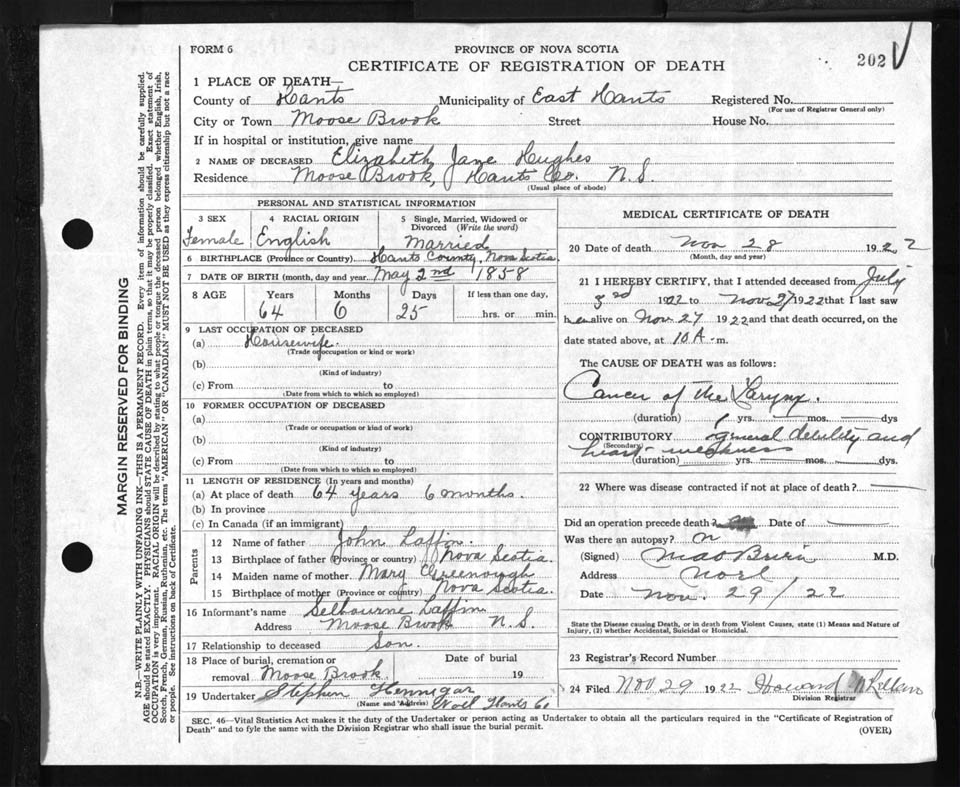 FORM 6
PROVINCE OF NOVA SCOTIA
CERTIFICATE OF REGISTRATION OF DEATH
202
MARGIN RESERVED FOR BINDING
N.B.—WRITE PLAINLY WITH UNFADING INK—THIS IS A PERMANENT RECORD. Every item of information should be carefully supplied.
AGE should be stated EXACTLY. PHYSICIANS should STATE CAUSE OF DEATH in plain terms, so that it may be properly classified. Exact statement of
OCCUPATION is very important. RACIAL ORIGIN will be described by stating to what people or tongue the deceased person belonged whether English, Irish,
Scotch, French, German, Russian, Ruthenian, etc. The terms "AMERICAN" OR "CANADIAN" MUST NOT BE USED as they express citizenship but not a race
or people. See instructions on back of Certificate.
1 PLACE OF DEATH—
County of Hants Municipality of East Hants Registered No.
(For use of Registrar General only)
City or Town Moose Brook Street House No.
If in hospital or institution, give name
2 NAME OF DECEASED Elizabeth Jane Hughes
Residence Moose Brook, Hants Co. N.S.
(Usual place of abode)
PERSONAL AND STATISTICAL INFORMATION
3 SEX 4 RACIAL ORIGIN 5 Single, Married, Widowed or
Divorced (Write the word)
Female English Married
6 BIRTHPLACE (Province or Country) Hants County, Nova Scotia.
7 DATE OF BIRTH (month, day and year) May 2nd 1858
8 AGE Years Months Days If less than one day,
64 6 25 hrs. or min.
9 LAST OCCUPATION OF DECEASED
(a) Housewife.
(Trade or occupation or kind or work)
(b)
(Kind of industry)
(c) From to
(Date from which to which so employed)
10 FORMER OCCUPATION OF DECEASED
(a)
(Trade or occupation or kind of work)
(b)
(Kind of industry)
(c) From to
(Date from which to which so employed)
11 LENGTH OF RESIDENCE (In years and months)
(a) At place of death 64 years 6 months.
(b) In province
(c) In Canada (if an immigrant)
Parents
12 Name of father John Laffin
13 Birthplace of father (Province or country) Nova Scotia
14 Maiden name of mother Mary Greenough
15 Birthplace of mother (Province or country) Nova Scotia.
16 Informant's name Selbourne Laffin
Address Moose Brook N.S.
17 Relationship to deceased Son.
18 Place of burial, cremation or Date of burial
removal Moose Brook 19
19 Undertaker Stephen Hennigar
(Name and Address) Noel Hants Co
MEDICAL CERTIFICATE OF DEATH
20 Date of death Nov 28 1922
(Month, day and year)
21 I HEREBY CERTIFY, that I attended deceased from July
3rd 1922 to Nov 27 1922 that I last saw
her alive on Nov 27 1922 and that death occurred, on the
date stated above, at 10 A.m.
The CAUSE OF DEATH was as follows:
Cancer of the Larynx.
(duration) 1 yrs. mos. dys
CONTRIBUTORY general debility and
(Secondary)
heart weakness
(duration) yrs. mos. dys.
22 Where was disease contracted if not at place of death?
Did an operation precede death? Date of
Was there an autopsy?
(Signed) M.D.
Address Noel
Date Nov. 29/22
State the Disease causing Death, or in death from Violent Causes, state (1) Means and Nature of
Injury, (2) whether Accidental, Suicidal or Homicidal.
23 Registrar's Record Number
24 Filed Nov 29 1922 Howard
Division Registrar
SEC. 46—Vital Statistics Act makes it the duty of the Undertaker or person acting as Undertaker to obtain all the particulars required in the "Certificate of Registration of
Death" and to fyle the same with the Division Registrar who shall issue the burial permit.
(OVER)